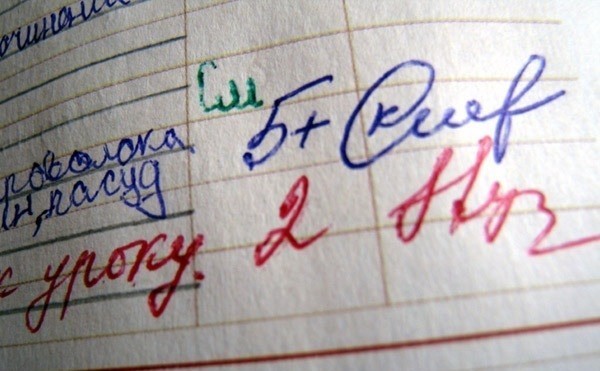 очинени
См
роволока 5+
н, посуд
к уроку. 2